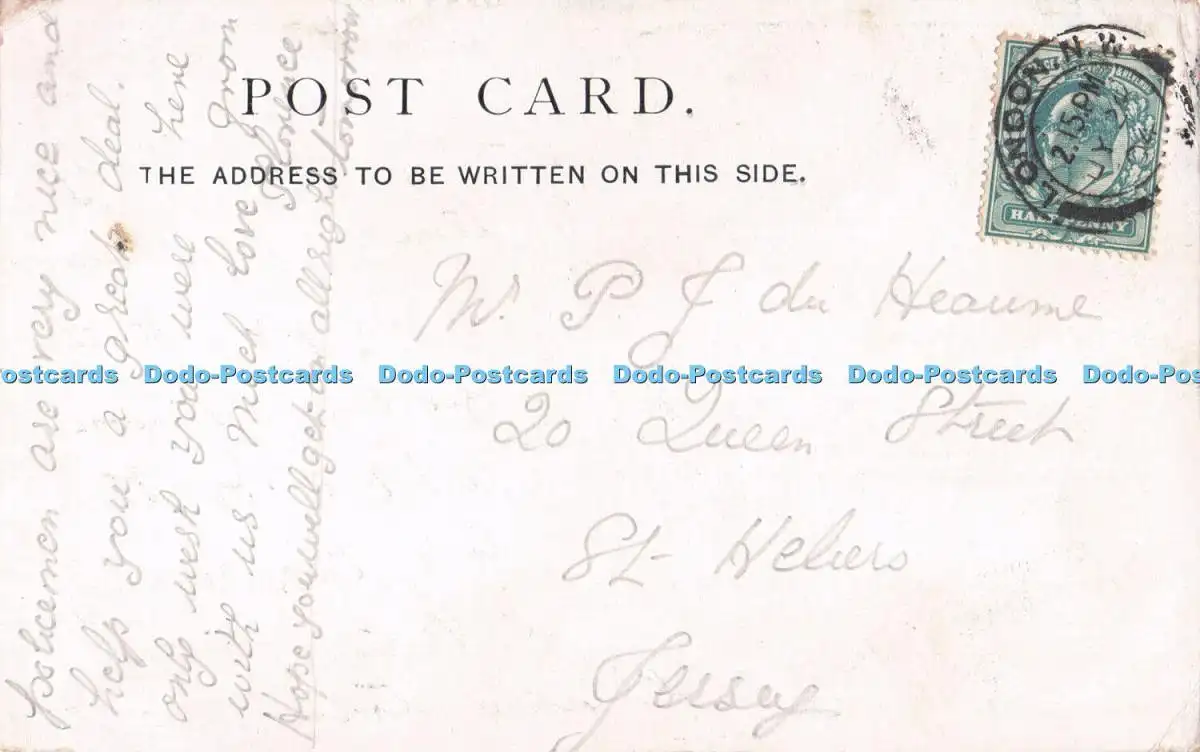 POST CARD.
THE ADDRESS TO BE WRITTEN ON THIS SIDE.
LONDON. N.W.
2.15PM
JY
04
HALFPENNY
Mr. P J du Heaume
20 Queen Street
St Heliers
Jersey
policemen are very nice and
help you a great deal.
only wish you were here
with us. Much love from
Florence
Hope you will get on all right tomorrow
ostcards Dodo-Postcards Dodo-Postcards Dodo-Postcards Dodo-Postcards Dodo-Postc